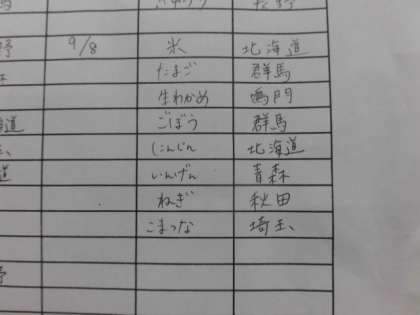 野 9/8 米 北海道
たまご 群馬
生わかめ 鳴門
ごぼう 群馬
にんじん 北海道
いんげん 青森
ねぎ 秋田
こまつな 埼玉